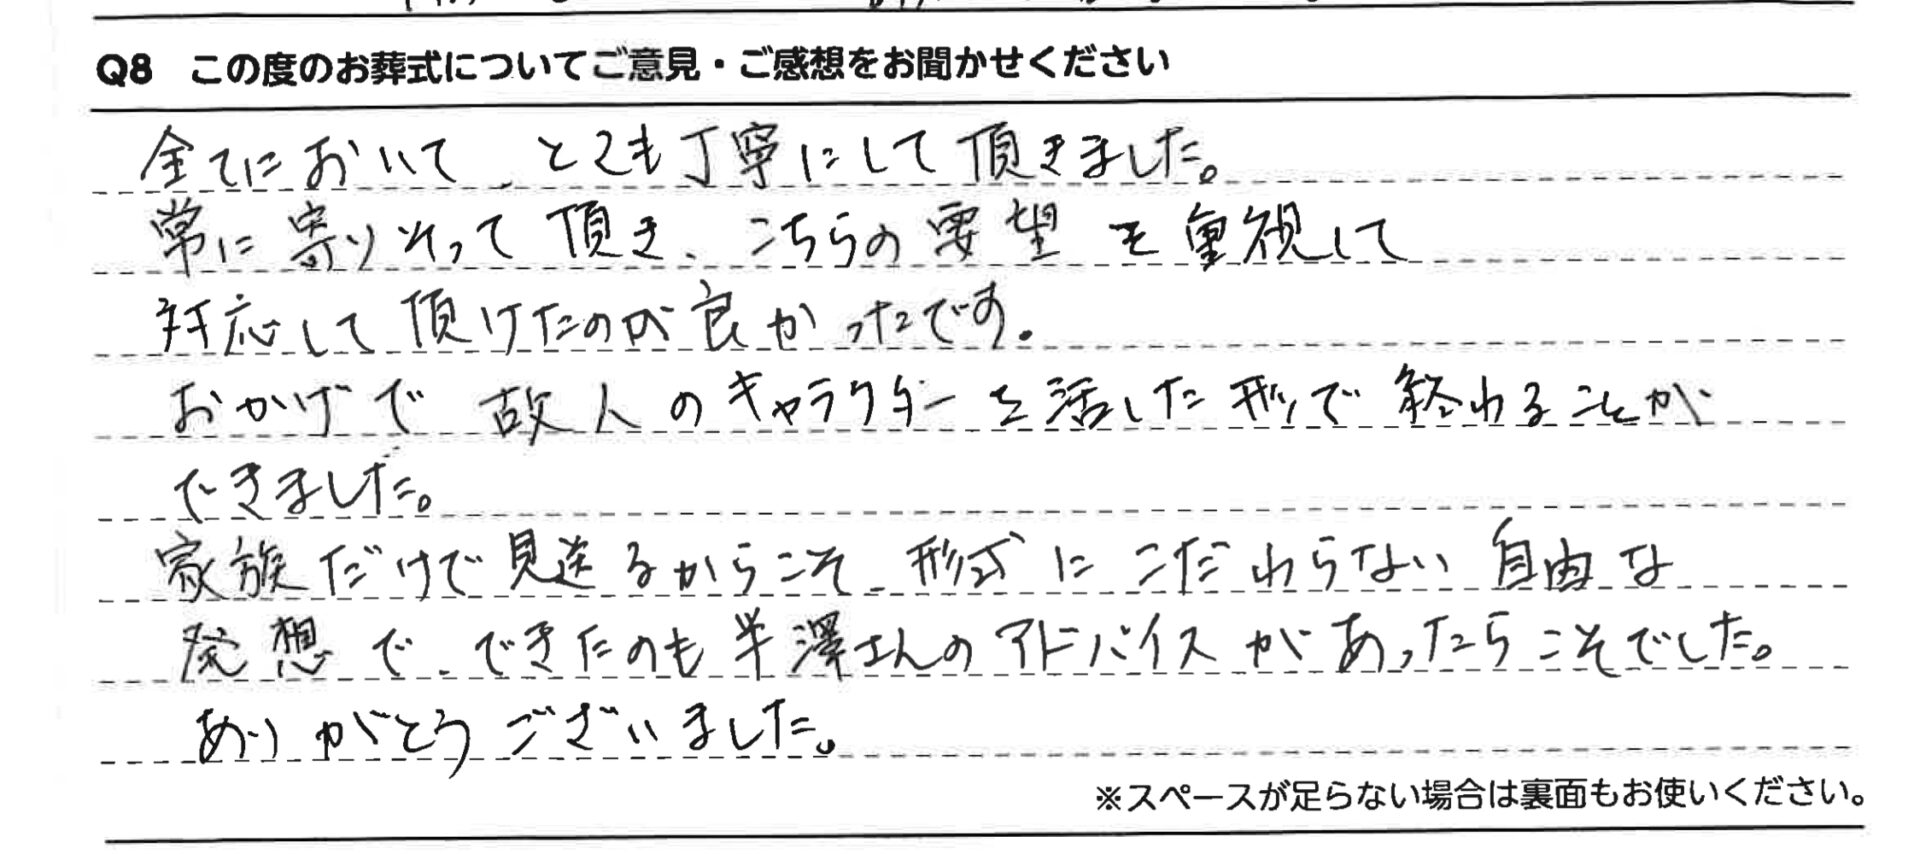 Q8 この度のお葬式についてご意見・ご感想をお聞かせください
全てにおいて、とても丁寧にして頂きました。
常に寄りそって頂き、こちらの要望を重視して
対応して頂けたのが良かったです。
おかげで故人のキャラクターを活した形で終わることが
できました。
家族だけで見送るからこそ、形式にこだわらない自由な
発想で、できたのも半澤さんのアドバイスがあったらこそでした。
ありがとうございました。
※スペースが足らない場合は裏面もお使いください。